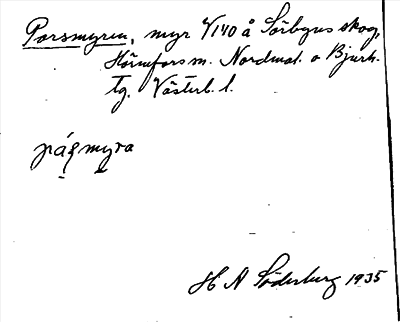 Porsmyren, myr 4/140 å Sörbyns skog,
Hörnefors m. Nordmal. o Bjurh.
tg. Västerb. l.
påʂmyra
H A Söderberg 1935